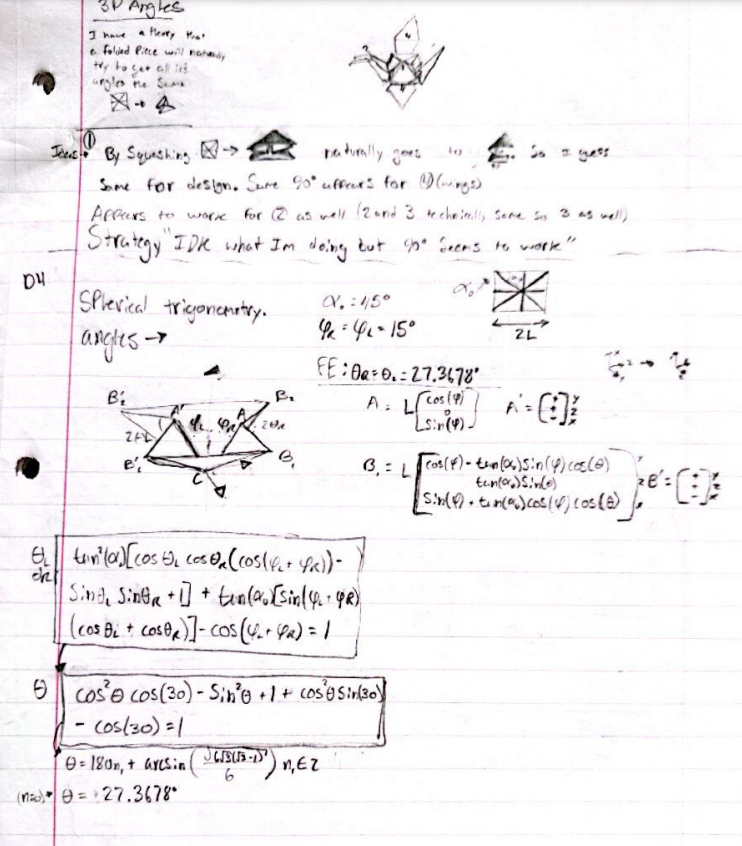 3D Angles
I have a theory that
a folded Piece will naturally
try to get all its
angles the same
Ideas → ① By Squashing → naturally goes to . So I guess
Same for design. Sure 90° appears for ④ (wings)
Appears to work for ② as well (2 and 3 technically same so 3 as well)
Strategy "IDK what Im doing but 90° Seems to work"
D4
Spherical trigonometry.
angles →
α₀ = 45°
φR = φL = 15°
FE: θR = θL = 27.3678°
α₀
2L
A = L[cos(φ) 0 Sin(φ)] A' =
B₁ = L[cos(φ) - tan(α₀) Sin(φ) cos(θ)
tan(α₀) Sin(θ)
Sin(φ) + tan(α₀) cos(φ) cos(θ)]
B₂' A' φL φR A B₂
2θR
B₁' B₁
C
θL or tan²(α)[cos θL cos θR (cos(φL + φR)) -
Sin θL Sin θR + 1] + tan(α₀)[Sin(φL + φR)
(cos θL + cos θR)] - cos(φL + φR) = 1
θ cos²θ cos(30) - Sin²θ + 1 + cos²θ Sin(30)
- cos(30) = 1
θ = 180n, + arcsin( 6 ) n, ∈ Z
(n=0) → θ = 27.3678°